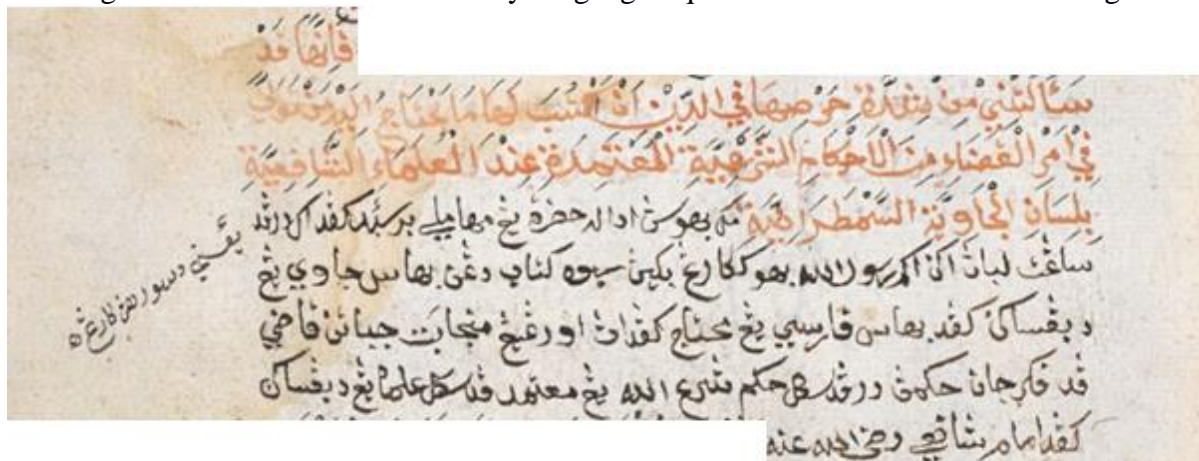 فَإِنَّهَا قَدْ
سَأَلَتْنِي مِنْ شِدَّةِ حِرْصِهَا فِي الدِّيْنِ أَنْ أَكْتُبَ لَهَا مَا يَحْتَاجُ إِلَيْهِ مَنْ تَوَلَّى
فِي أَمْرِ الْقَضَاءِ مِنَ الْأَحْكَامِ الشَّرْعِيَّةِ الْمُعْتَمَدَةِ عِنْدَ الْعُلَمَاءِ الشَّافِعِيَّةِ
بِلِسَانِ الْجَاوِيَّةِ السُّمَطْرَائِيَّةِ مك بهوسڽ اداله حضرة يڠ مها ملي برسبدا كڤد اكو
ساڠت لباڽ اكن اكم رسول الله بهو كوكارڠ بكيڽ سبوه كتاب دڠن بهاس جاوي يڠ
دبڠساكن كڤد بهاس ڤاسي يڠ محتاج كڤداڽ اورڠيڠ منجابت جباتن قاضي
ڤد ڤكرجان حكمڽ درڤد سكل حكم شرع الله يڠ معتمد ڤد سكل علما يڠ دبڠساكن
كڤد امام شافعي رضي الله عنه
دسورهڽ كارڠ